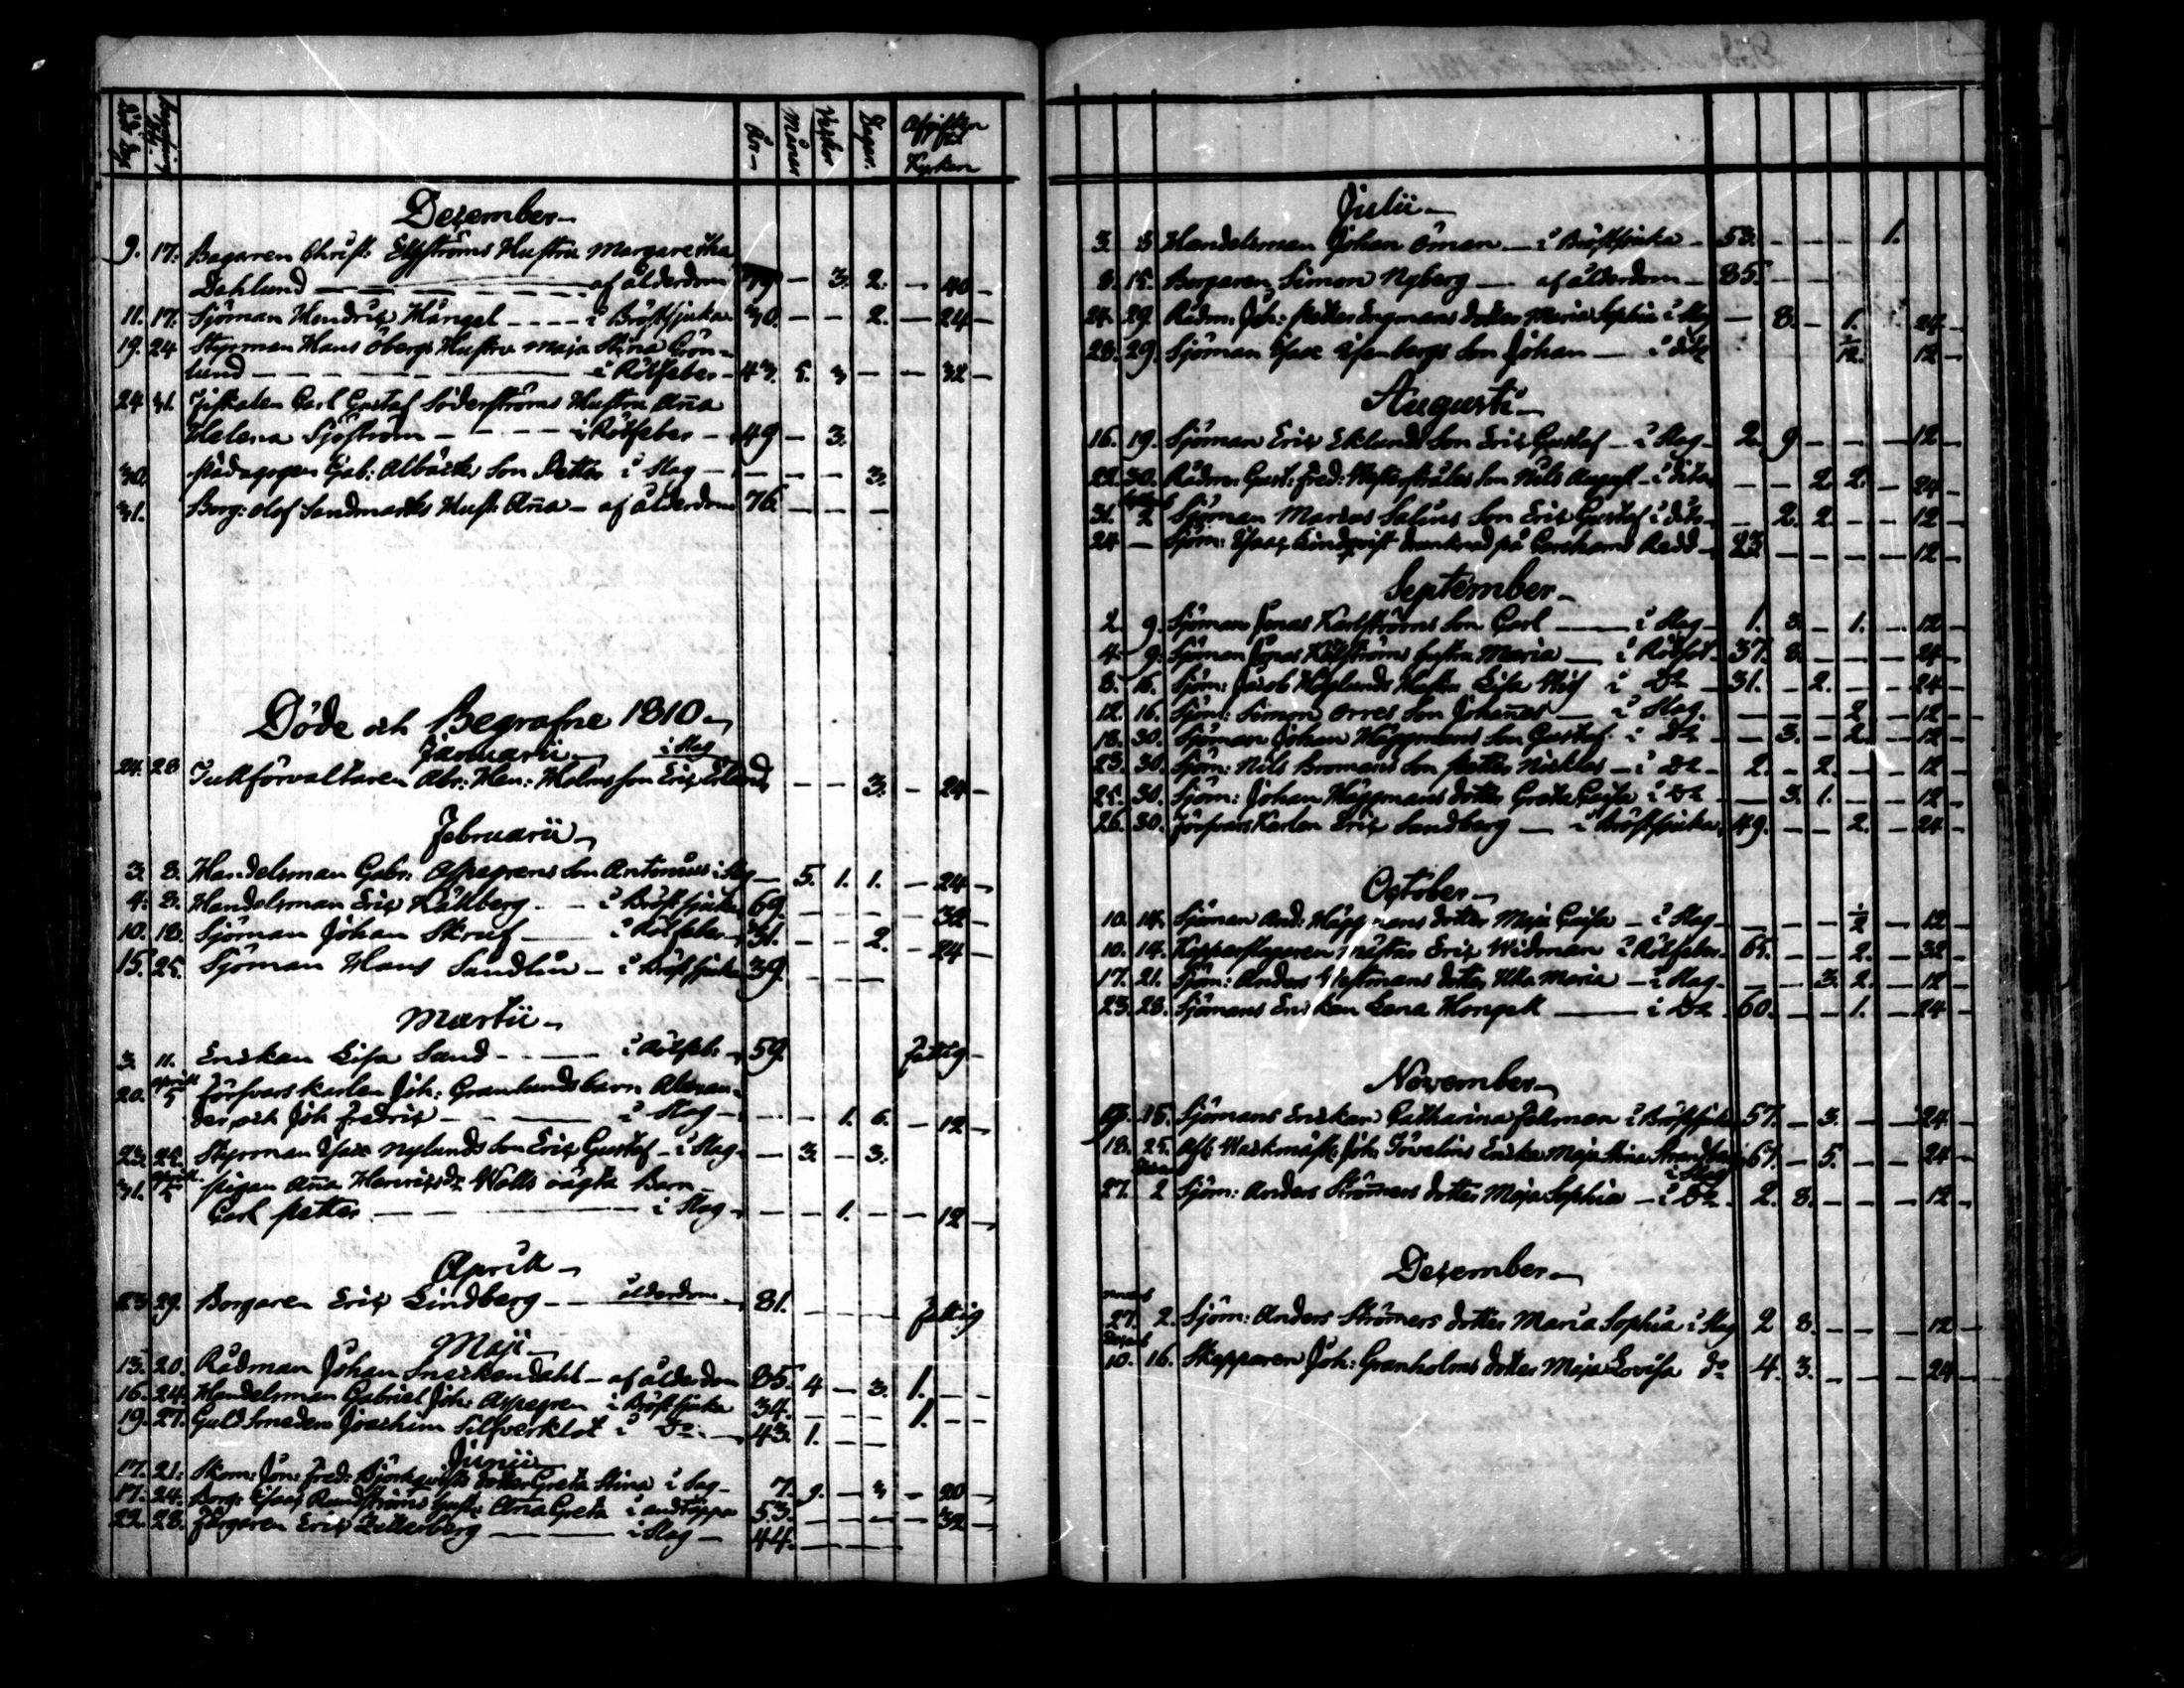 Död Dag Begrafning År Månar Vekor Dagar. Afgiften til Kyrkan
December
9. 17. Bagaren Christ: Elgströms Hustru Margaretha
Dahlund af ålderdom 79 — 3. 2. — 40 —
11. 17. Sjöman Hendric Hångel i Bröstsjuka 30. — — 2. — 24 —
19. 24 Styrman Hans Öbergs Hustru Maja Stina Grön-
lund i Rötfeber 43. 5. 3 — — 32 —
24 31. Fiskalen Carl Gustaf Söderströms Hustru Aña
Helena Sjöström i Rötfeber 49 — 3.
30. Pædagogen Gab: Albäcks Son Petter i Slag — — — 3.
31. Borg: Olof Sandmarks Hust: Aña — af ålderdom 76 — — —
Döde och Begrafne 1810
Januarii
i Slag
24. 28 Tullförvaltaren Abr: Hen: Holms son Eric Erland — — 3. — 24 —
Februarii
3. 8. Handelsman Gabr: Aspegrens Son Antonius i Slag — 5. 1. 1. — 24 —
4. 8. Handelsman Eric Kållberg i Bröstsjuka 69. — — — 32 —
10. 18. Sjöman Johan Skruf i Rötfeber 31. — — 2. — 24 —
15. 25. Sjöman Hans Sundlin i Bröstsjuka 39. — — —
Martii
3. 11. Enckan Lisa Sand i Rötfeb: 59. fattig
20. april 5 Försvarskarlen Joh: Granlunds barn Alexan-
der och Joh Fredric i Slag — — 1. 6. — 12 —
23. 25. Styrman Isac Nylunds Son Eric Gustaf i Slag — 3. — 3.
31. april 5 Pigan Aña Henricsdr Walls oägta Barn
Carl Petter i Slag — — 1. — — 12 —
April
23 29. Borgaren Eric Lindberg ålderdom 81. — — — fattig
Maji
13. 20. Rådman Johan Sneckendahl af ålderdom 85. 4 — 3. 1. — —
16. 24. Handelsman Gabriel Joh: Aspegren i Bröstsjuka 34. — — — 1. — —
19. 27. Guldsmeden Joachim Silfverklot i Do 43. 1. — —
Junii
17. 21. Skom: Jon: Fred: Björkqvists dotter Greta Stina i Sag 7. 9. — 3 — 20 —
17. 24. Borg: Isac Rundströms Hust: Aña Greta i andtäppa 53. — — — — 32 —
22. 28. Färgaren Eric Zetterberg i Slag 44. — — —
Julii
3. 8 Handelsman Johan Öman i Bröstsjuka 58. — — — 1.
8. 15. Borgaren Simon Nyberg af ålderdom 85. — —
24. 29. Rådm: Joh: Petter Engmans dotter Maria Sophia i Slag — 8. — 1. 24 —
28. 29. Sjöman Isac Isenbergs Son Johan i dito 1/12. 12 —
Augusti
16. 19. Sjöman Eric Eklunds Son Eric Gustaf i Slag 2. 9 — — — 12 —
22. 30. Rådm: Gust: Fred: Westerstråles Son Nils August i dito — — 2. 2. — 24 —
31. 2 Sjöman Marcus Salins Son Eric Gustaf i dito — 2. 2. — — 12 —
24 — Sjöm: Isac Lindqvist drunknad på Redd 23 — — — — 12 —
September
2. 9. Sjöman Jonas Karlströms Son Carl i Slag 1. 8. — 1. — 12 —
4. 9. Sjöman Jonas Hustru Maria i Rötfeb: 37. 8. — — — 24 —
8. 16. Sjöm: Jacob Höglunds Hustru Lisa i Do 31. — 2. — — 24 —
12. 16. Sjöm: Simon Orres Son Johanes i Slag — — — 2 — 12 —
18. 30. Sjöman Johan Häggmans Son Gustaf i Do — 3. — 2. — 12 —
23. 30. Sjöm: Nils Bromans Son Petter Nicklas i Do 2. — 2. — — 12 —
25. 30. Sjöm: Johan Häggmans dotter Greta Cajsa i Do — 3. 1. — — 12 —
26. 30. Försvars Karlen Eric Sandberg i Bröstsjuka 49. — — 2. — 24 —
October
10. 14. Sjöman And: Häggmans dotter Maja Cajsa i Slag — — — 1/2 — 12 —
10. 14. Kopparslagaren Mäster Eric Widman i Rötfeber 65. — — 2. — 32 —
17. 21. Sjöm: Anders Westmans dotter Ulla Maria i Slag — — 3. 2. — 12 —
23. 28. Sjömans Enckan Lena Hongell i Do 60. — — 1. — 24 —
November
13. 18. Sjömans Enckan Catharina Felman i Bröstsjuka 57. — 3. — — 24 —
18. 25. Afl: Werkmäst: Joh: Enka Maja Stina Strandberg i Slag 67. — 5. — — 24 —
27. 2 Sjöm: Anders Strömers dotter Maja Sophia i Do 2. 8. — — — 12 —
December
27. 2. Sjöm: Anders Strömers dotter Maria Sophia i Slag 2 8. — — — 12 —
10. 16. Skepparen Joh: Granholms dotter Maja Lovisa do 4. 3. — — — 24 —